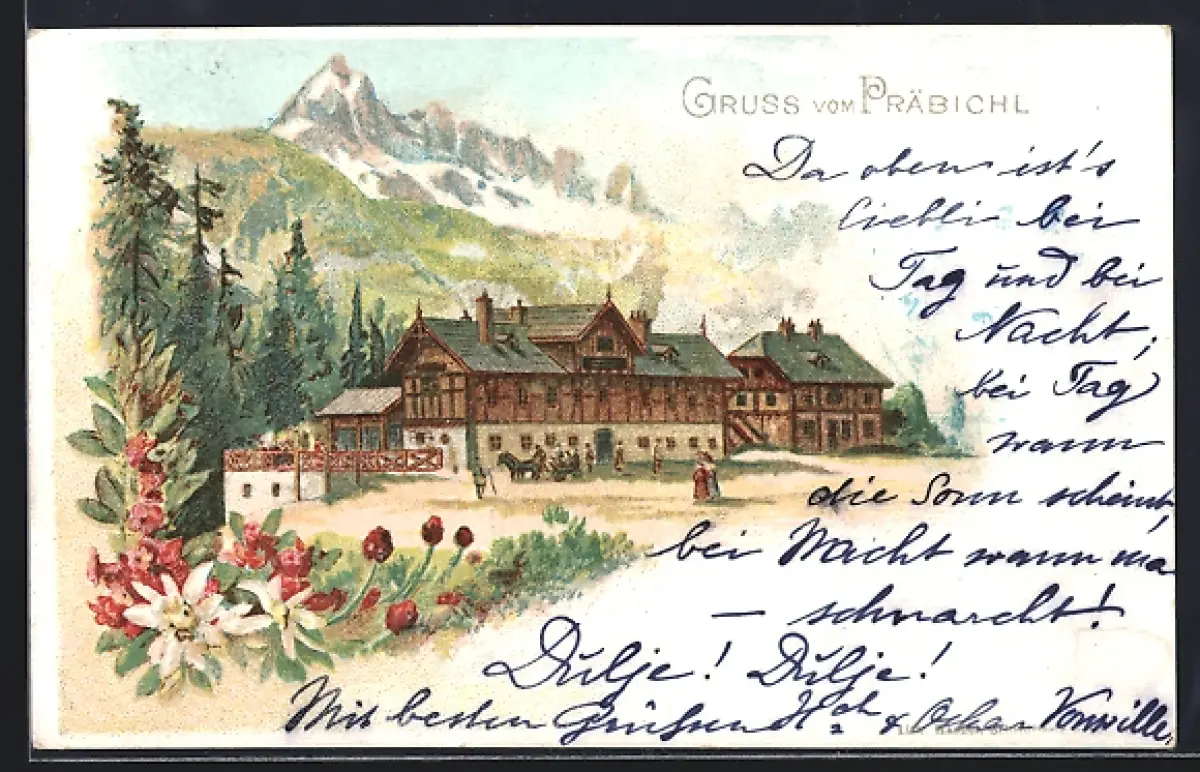 GRUSS VOM PRÄBICHL
Da oben ist's
liebli bei
Tag und bei
Nacht;
bei Tag
wann
die Sonn scheint,
bei Nacht wann ma
– schnarcht!
Dulje! Dulje!
Mit besten Grüßen & Oskar